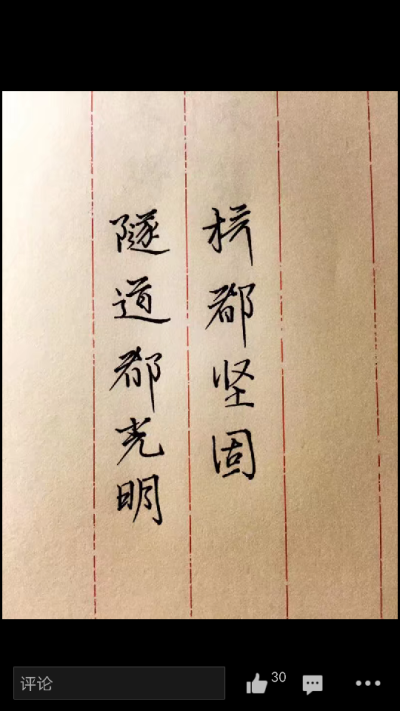 桥都坚固
隧道都光明
评论
30